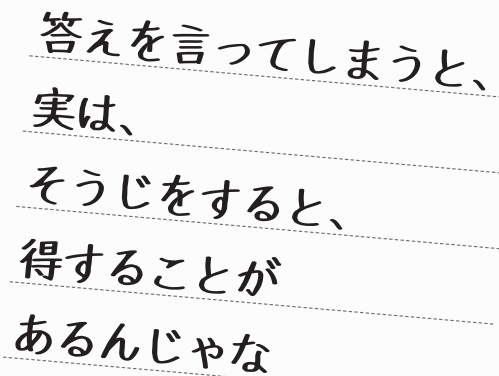 答えを言ってしまうと、
実は、
そうじをすると、
得することが
あるんじゃな